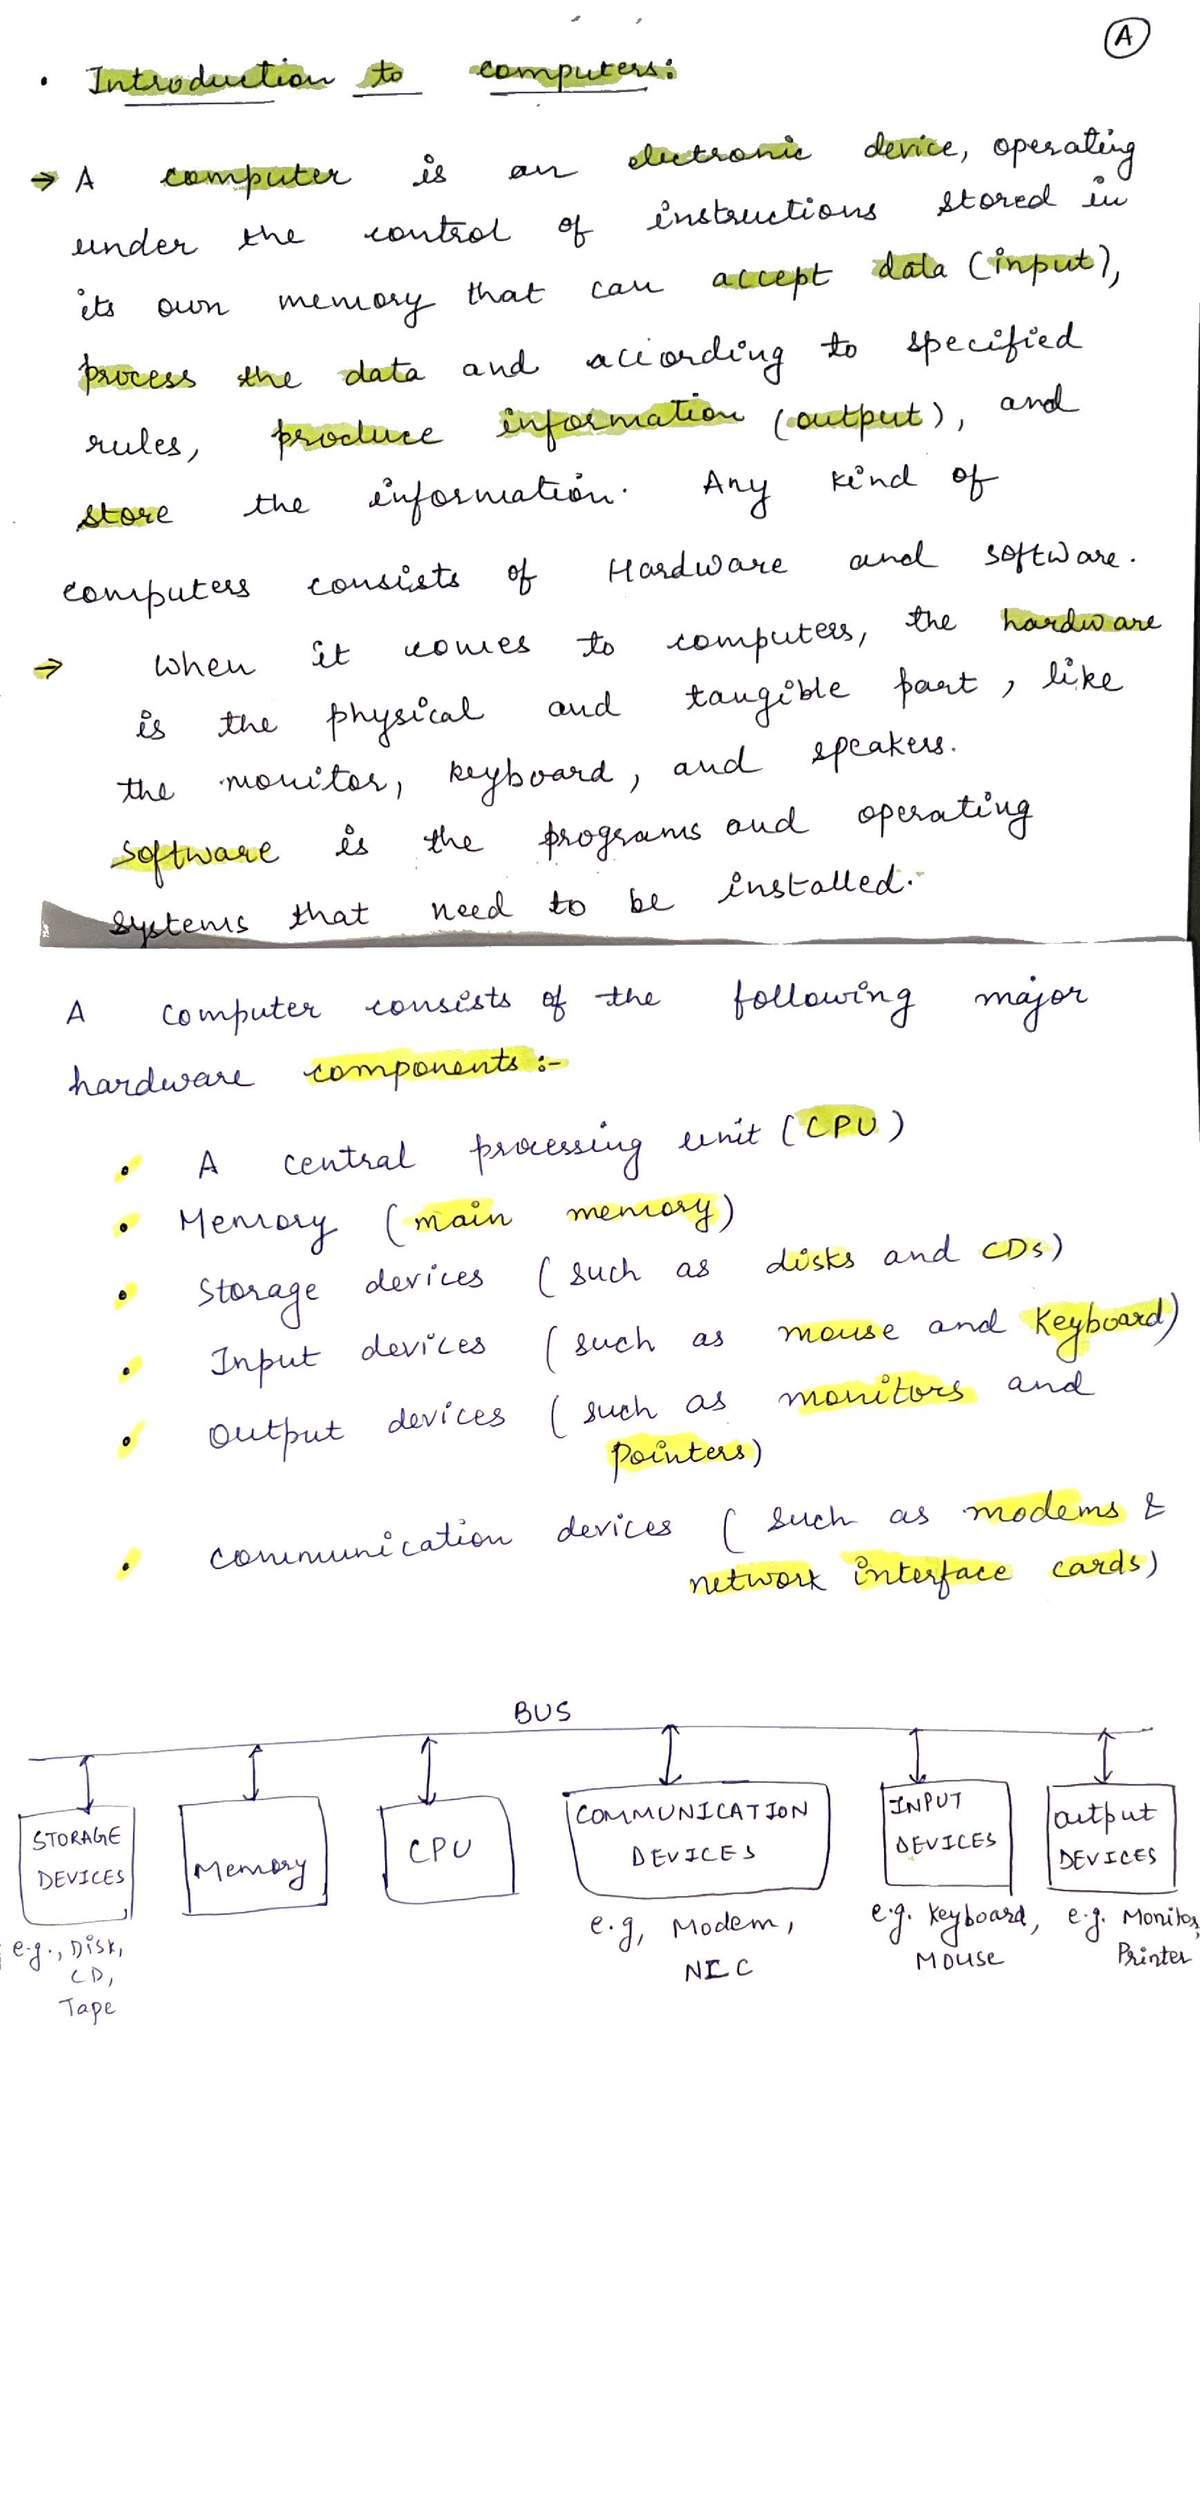 A
• Introduction to computers:
→ A computer is an electronic device, operating
under the control of instructions stored in
its own memory that can accept data (input),
process the data and according to specified
rules, produce information (output), and
store the information. Any kind of
computers consists of Hardware and software.
→ When it comes to computers, the hardware
is the physical and tangible part, like
the monitor, keyboard, and speakers.
Software is the programs and operating
systems that need to be installed.
A computer consists of the following major
hardware components:-
• A central processing unit (CPU)
• Memory (main memory)
• Storage devices (such as disks and CDs)
• Input devices (such as mouse and Keyboard)
• Output devices (such as monitors and
pointers)
• Communication devices (such as modems &
network interface cards)
BUS
STORAGE
DEVICES
Memory
CPU
COMMUNICATION
DEVICES
INPUT
DEVICES
output
DEVICES
e.g., Disk,
CD,
Tape
e.g, Modem,
NIC
e.g. Keyboard,
Mouse
e.g. Monitor,
Printer